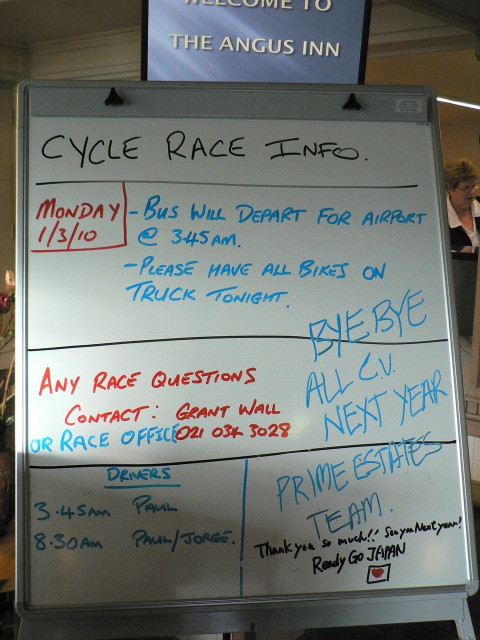 WELCOME TO
THE ANGUS INN
CYCLE RACE INFO.
MONDAY
1/3/10
- BUS WILL DEPART FOR AIRPORT
@ 3.45AM.
- PLEASE HAVE ALL BIKES ON
TRUCK TONIGHT.
BYE BYE
ALL C.U.
NEXT YEAR
PRIME ESTATES
TEAM.
ANY RACE QUESTIONS
CONTACT: GRANT WALL
OR RACE OFFICE 021 034 3028
DRIVERS
3.45AM PAUL
8.30AM PAUL/JORGE.
Thank you so much!! See you Next year!
Ready Go JAPAN